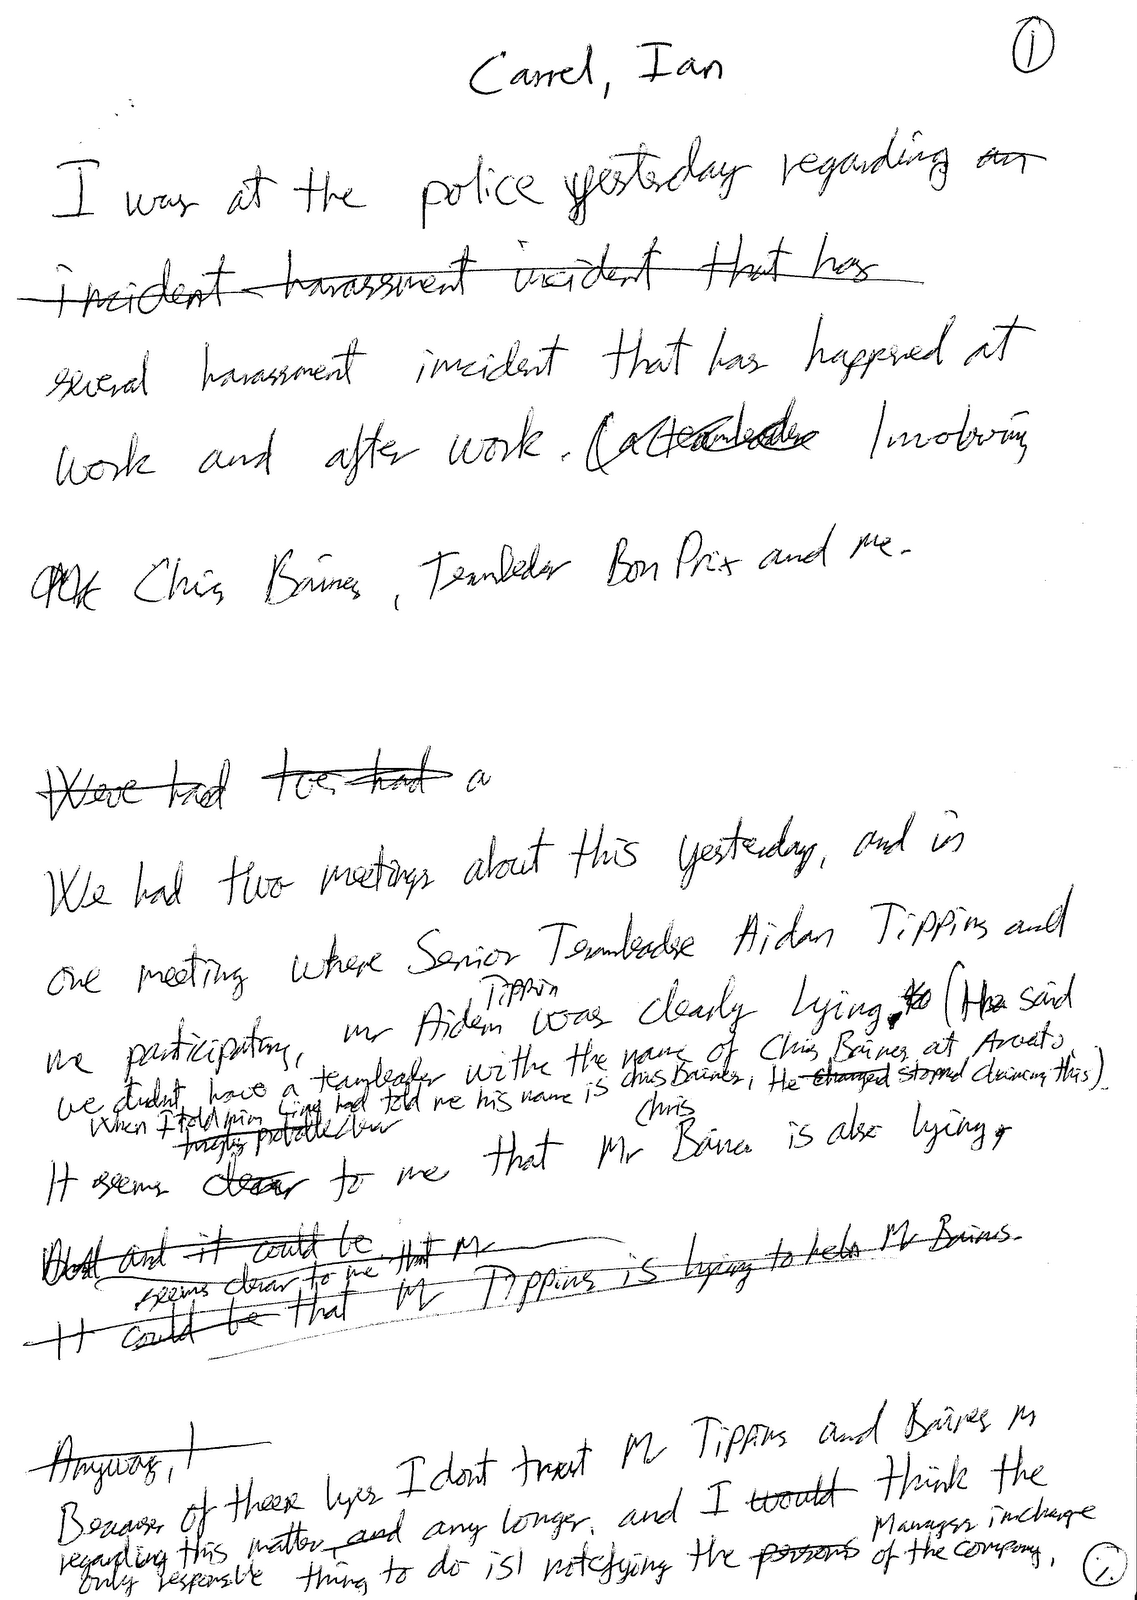 Carrel, Ian
1
I was at the police yesterday regarding an
incident harassment incident that has
several harassment incident that has happened at
work and after work. (a teamleader Involving
Chris Baines, Teamleder Bon Prix and me.
Weve had we had a
We had two meetings about this yesterday, and in
one meeting where Senior Teamleader Aidan Tippins and
Tippin
me participating, mr Aiden was clearly lying, to (He said
we didnt have a teamleader withe the name of Chris Baines at Arvato,
When I told him Line had told me his name is Chris Baines, He changed stopped claiming this).
Chris
It seems clear to me that Mr Baines is also lying,
and it could be that Mr
seems clear to me
It could be that Mr Tippins is lying to help Mr Baines.
Anyway, I
Because of these lyes I dont trust Mr Tippins and Baines in
regarding this matter, and any longer, and I would think the
Manager incharge
only responsible thing to do is notifying the persons of the company.